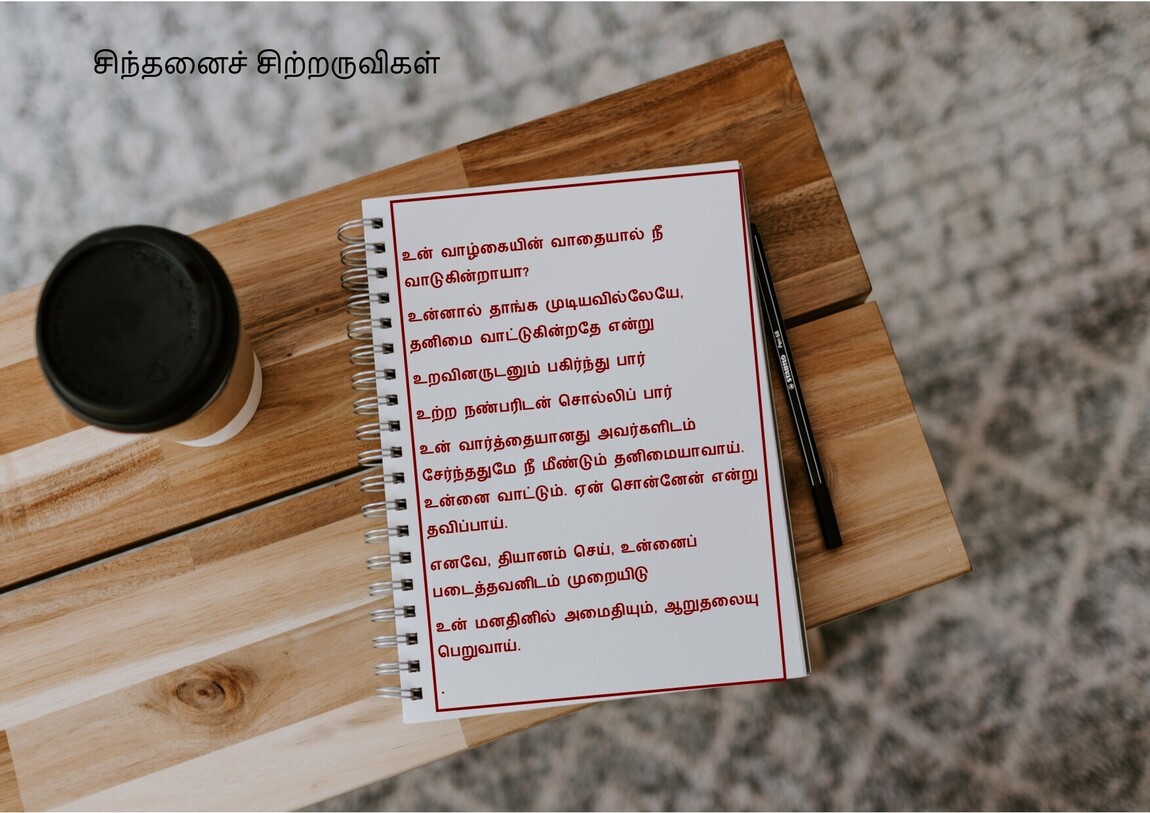 சிந்தனைச் சிற்றருவிகள்
உன் வாழ்கையின் வாதையால் நீ
வாடுகின்றாயா?
உன்னால் தாங்க முடியவில்லேயே,
தனிமை வாட்டுகின்றதே என்று
உறவினருடனும் பகிர்ந்து பார்
உற்ற நண்பரிடன் சொல்லிப் பார்
உன் வார்த்தையானது அவர்களிடம்
சேர்ந்ததுமே நீ மீண்டும் தனிமையாவாய்.
உன்னை வாட்டும். ஏன் சொன்னேன் என்று
தவிப்பாய்.
எனவே, தியானம் செய், உன்னைப்
படைத்தவனிடம் முறையிடு
உன் மனதினில் அமைதியும், ஆறுதலையு
பெறுவாய்.
.
STABILO Pen 68